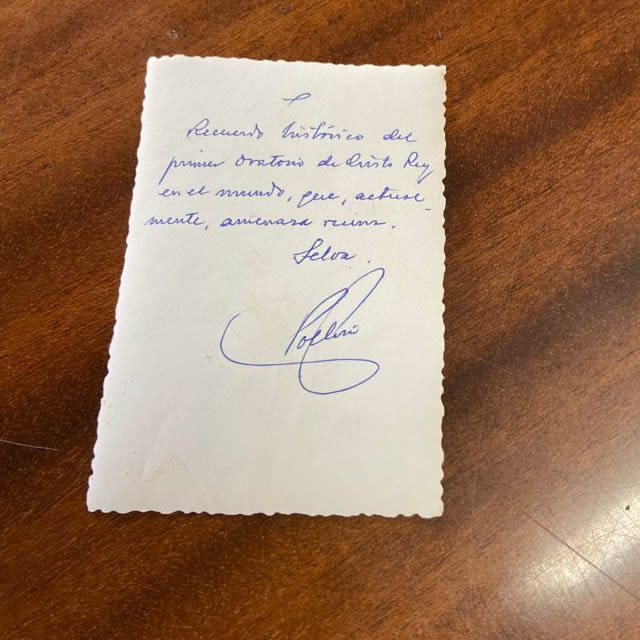 Recuerdo histórico del
primer oratorio de Cristo Rey
en el mundo, que, actual-
mente, amenaza ruina.
Selva.